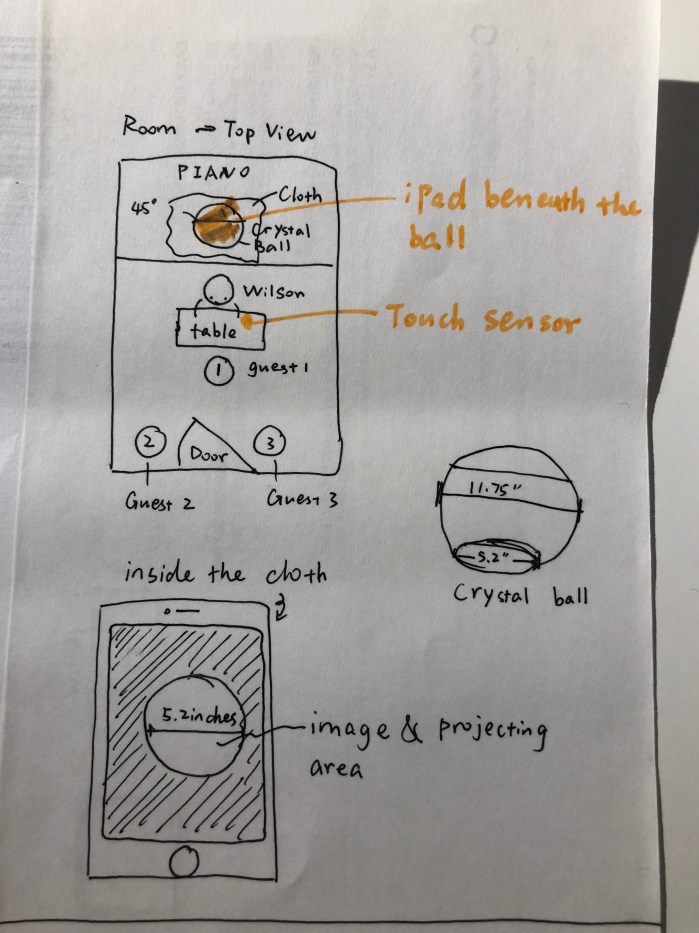 Room → Top View
PIANO
45°
Cloth
Crystal
Ball
iPad beneath the
ball
Wilson
table
Touch sensor
1
guest 1
2
Door
3
Guest 2
Guest 3
11.75"
5.2"
Crystal ball
inside the cloth
5.2inches
image & projecting
area